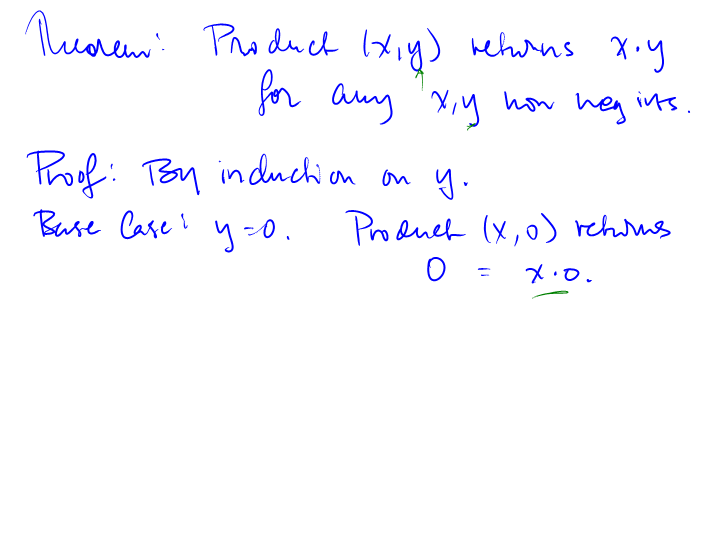 Theorem: Product (x,y) returns x·y
for any x,y non neg ints.
Proof: By induction on y.
Base Case: y=0. Product (x,0) returns
0 = x·0.